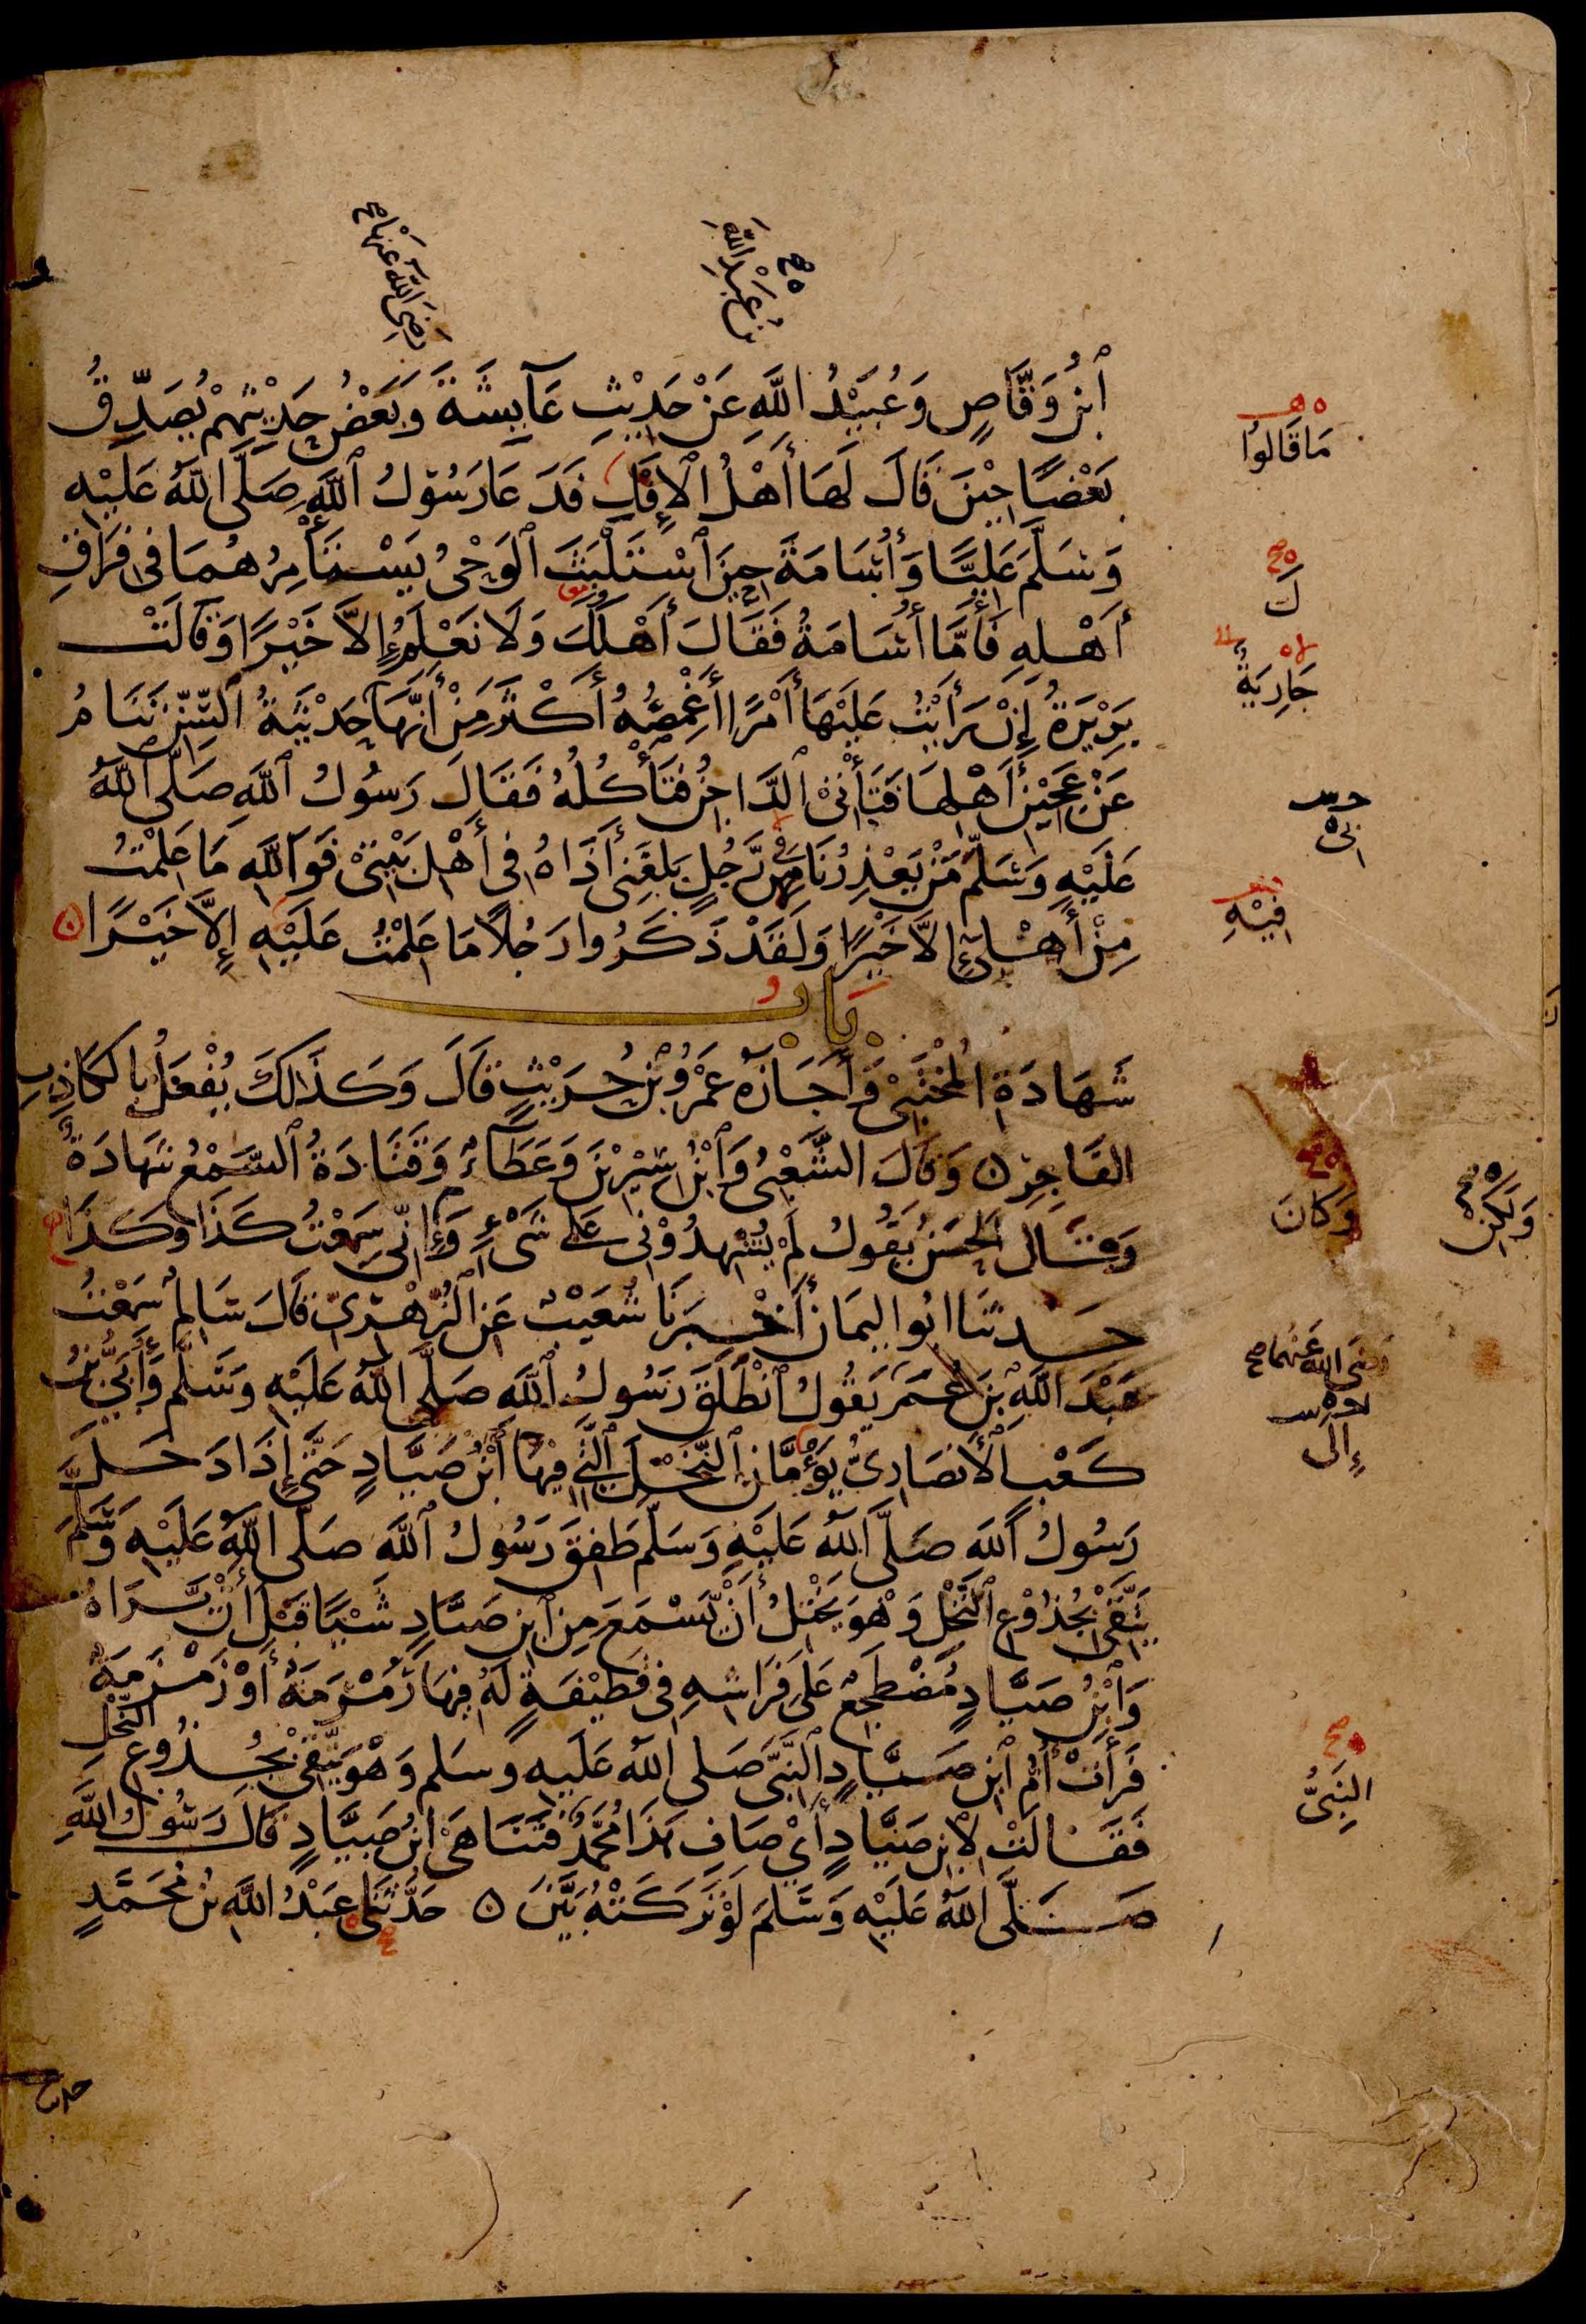 رَضِيَ اللَّهُ عَنْهَا صح
بْنُ عَبْدِ اللَّهِ
صح
ٱبْنُ وَقَّاصٍ وَعُبَيْدُ اللَّهِ عَنْ حَدِيْثِ عَآيِشَةَ وَبَعْضُ حَدِيْثِهِمْ يُصَدِّقُ
مَا قَالُوا
بَعْضًا حِيْنَ قَالَ لَهَا أَهْلُ الْإِفْكِ فَدَعَا رَسُوْلُ ٱللَّهِ صَلَّى اللَّهُ عَلَيْهِ
وَسَلَّمَ عَلِيًّا وَأُسَامَةَ حِيْنَ ٱسْتَلْبَثَ ٱلْوَحْىُ يَسْتَأْمِرُهُمَا فِى فِرَاقِ
صح
كَ
أَهْلِهِ فَأَمَّا أُسَامَةُ فَقَالَ أَهْلَكَ وَلَا نَعْلَمُ إِلَّا خَيْرًا وَقَالَتْ
جَارِيَةٌ
بَرِيْرَةُ إِنْ رَأَيْتُ عَلَيْهَا أَمْرًا أَغْمِصُهُ أَكْثَرَ مِنْ أَنَّهَا حَدِيْثَةُ السِّنِّ تَنَامُ
عَنْ عَجِيْنِ أَهْلِهَا فَتَأْتِىْ ٱلدَّاجِنُ فَتَأْكُلُهُ فَقَالَ رَسُوْلُ ٱللَّهِ صَلَّى ٱللَّهُ
عَلَيْهِ وَسَلَّمَ مَنْ يَعْذِرُنَا مِنْ رَّجُلٍ بَلَغَنِىْ أَذَاهُ فِي أَهْلِ بَيْتِىْ فَوَٱللَّهِ مَا عَلِمْتُ
فِيْهِ
مِنْ أَهْلِىْ إِلَّا خَيْرًا وَلَقَدْ ذَكَرُوا رَجُلًا مَا عَلِمْتُ عَلَيْهِ إِلَّا خَيْرًا
بَابُ
شَهَادَةِ الْمُخْتَبِىْ وَأَجَازَهُ عَمْرُو بْنُ حُرَيْثٍ قَالَ وَكَذٰلِكَ يُفْعَلُ بِالْكَاذِبِ
الْفَاجِرِ وَقَالَ الشَّعْبِىُّ وَٱبْنُ سِيْرِيْنَ وَعَطَآءٌ وَقَتَادَةُ ٱلسَّمْعُ شَهَادَةٌ
صح
وَكَانَ
وَلَكِنْ
صح
وَقَالَ الْحَسَنُ يَقُوْلُ لَمْ يُشْهِدُوْنِى عَلَى شَىْءٍ وَإِنِّى سَمِعْتُ كَذَا وَكَذَا
حَدَّثَنَا ابُو الْيَمَانِ أَخْبَرَنَا شُعَيْبٌ عَنِ ٱلزُّهْرِىِّ قَالَ سَالِمٌ سَمِعْتُ
رَضِيَ اللَّهُ عَنْهُمَا صح
عَبْدَ اللَّهِ بْنَ عُمَرَ يَقُوْلُ ٱنْطَلَقَ رَسُوْلُ ٱللَّهِ صَلَّى اللَّهُ عَلَيْهِ وَسَلَّمَ وَأُبَىُّ بْنُ
إِلَى
كَعْبٍ الْأَنْصَارِىُّ يَؤُمَّانِ ٱلنَّخْلَ الَّتِي فِيهَا ٱبْنُ صَيَّادٍ حَتَّى إِذَا دَخَلَ
رَسُوْلُ ٱللَّهِ صَلَّى اللَّهُ عَلَيْهِ وَسَلَّمَ طَفِقَ رَسُوْلُ ٱللَّهِ صَلَّى اللَّهُ عَلَيْهِ وَسَلَّمَ
يَتَّقِىْ بِجُذُوْعِ ٱلنَّخْلِ وَهْوَ يَخْتِلُ أَنْ يَّسْمَعَ مِنِ ٱبْنِ صَيَّادٍ شَيْئًا قَبْلَ أَنْ يَّرَاهُ
وَٱبْنُ صَيَّادٍ مُضْطَجِعٌ عَلَى فِرَاشِهِ فِى قَطِيْفَةٍ لَهُ فِيْهَا رَمْرَمَةٌ أَوْ زَمْزَمَةٌ
فَرَأَتْ أُمُّ ٱبْنِ صَيَّادٍ ٱلنَّبِىَّ صَلى اللَّهُ عَلَيهِ وسَلم وَهْوَ يَتَّقِىْ بِجُذُوْعِ النَّخْلِ
صح
النَّبِىُّ
فَقَالَتْ لِابْنِ صَيَّادٍ أَيْ صَافِ هٰذَا مُحَمَّدٌ فَتَنَاهَىْ ابْنُ صَيَّادٍ قَالَ رَسُوْلُ اللَّهِ
صَلَّى اللَّهُ عَلَيْهِ وَسَلَّمَ لَوْ تَرَكَتْهُ بَيَّنَ حَدَّثَنَى عَبْدُ اللَّهِ بْنُ مُحَمَّدٍ
صح